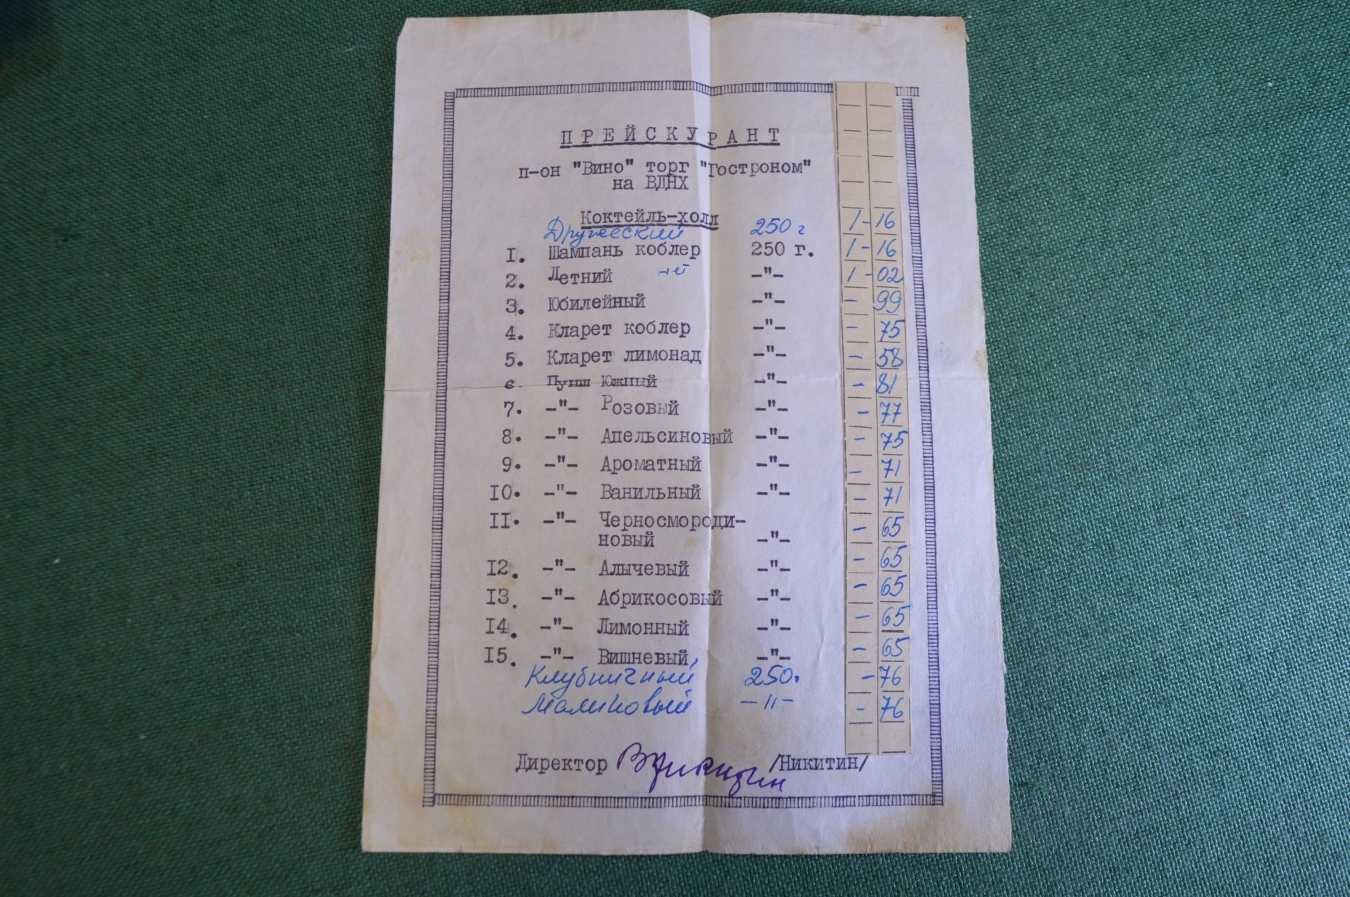 ПРЕЙСКУРАНТ
п-он "Вино" торг "Гостроном"
на ВДНХ
Коктейль-холл
Дружеский 250 г 1-16
1. Шампань коблер 250 г. 1-16
2. Летний -"- 1-02
3. Юбилейный -"- - 99
4. Кларет коблер -"- - 75
5. Кларет лимонад -"- - 58
6 Пунш Южный -"- - 81
7. -"- Розовый -"- - 77
8. -"- Апельсиновый -"- - 75
9. -"- Ароматный -"- - 71
10. -"- Ванильный -"- - 71
11. -"- Черносмороди- - 65
новый -"-
12. -"- Алычевый -"- - 65
13. -"- Абрикосовый -"- - 65
14. -"- Лимонный -"- - 65
15. -"- Вишневый -"- - 65
Клубничный 250. - 76
Малиновый -"- - 76
Директор /Никитин/